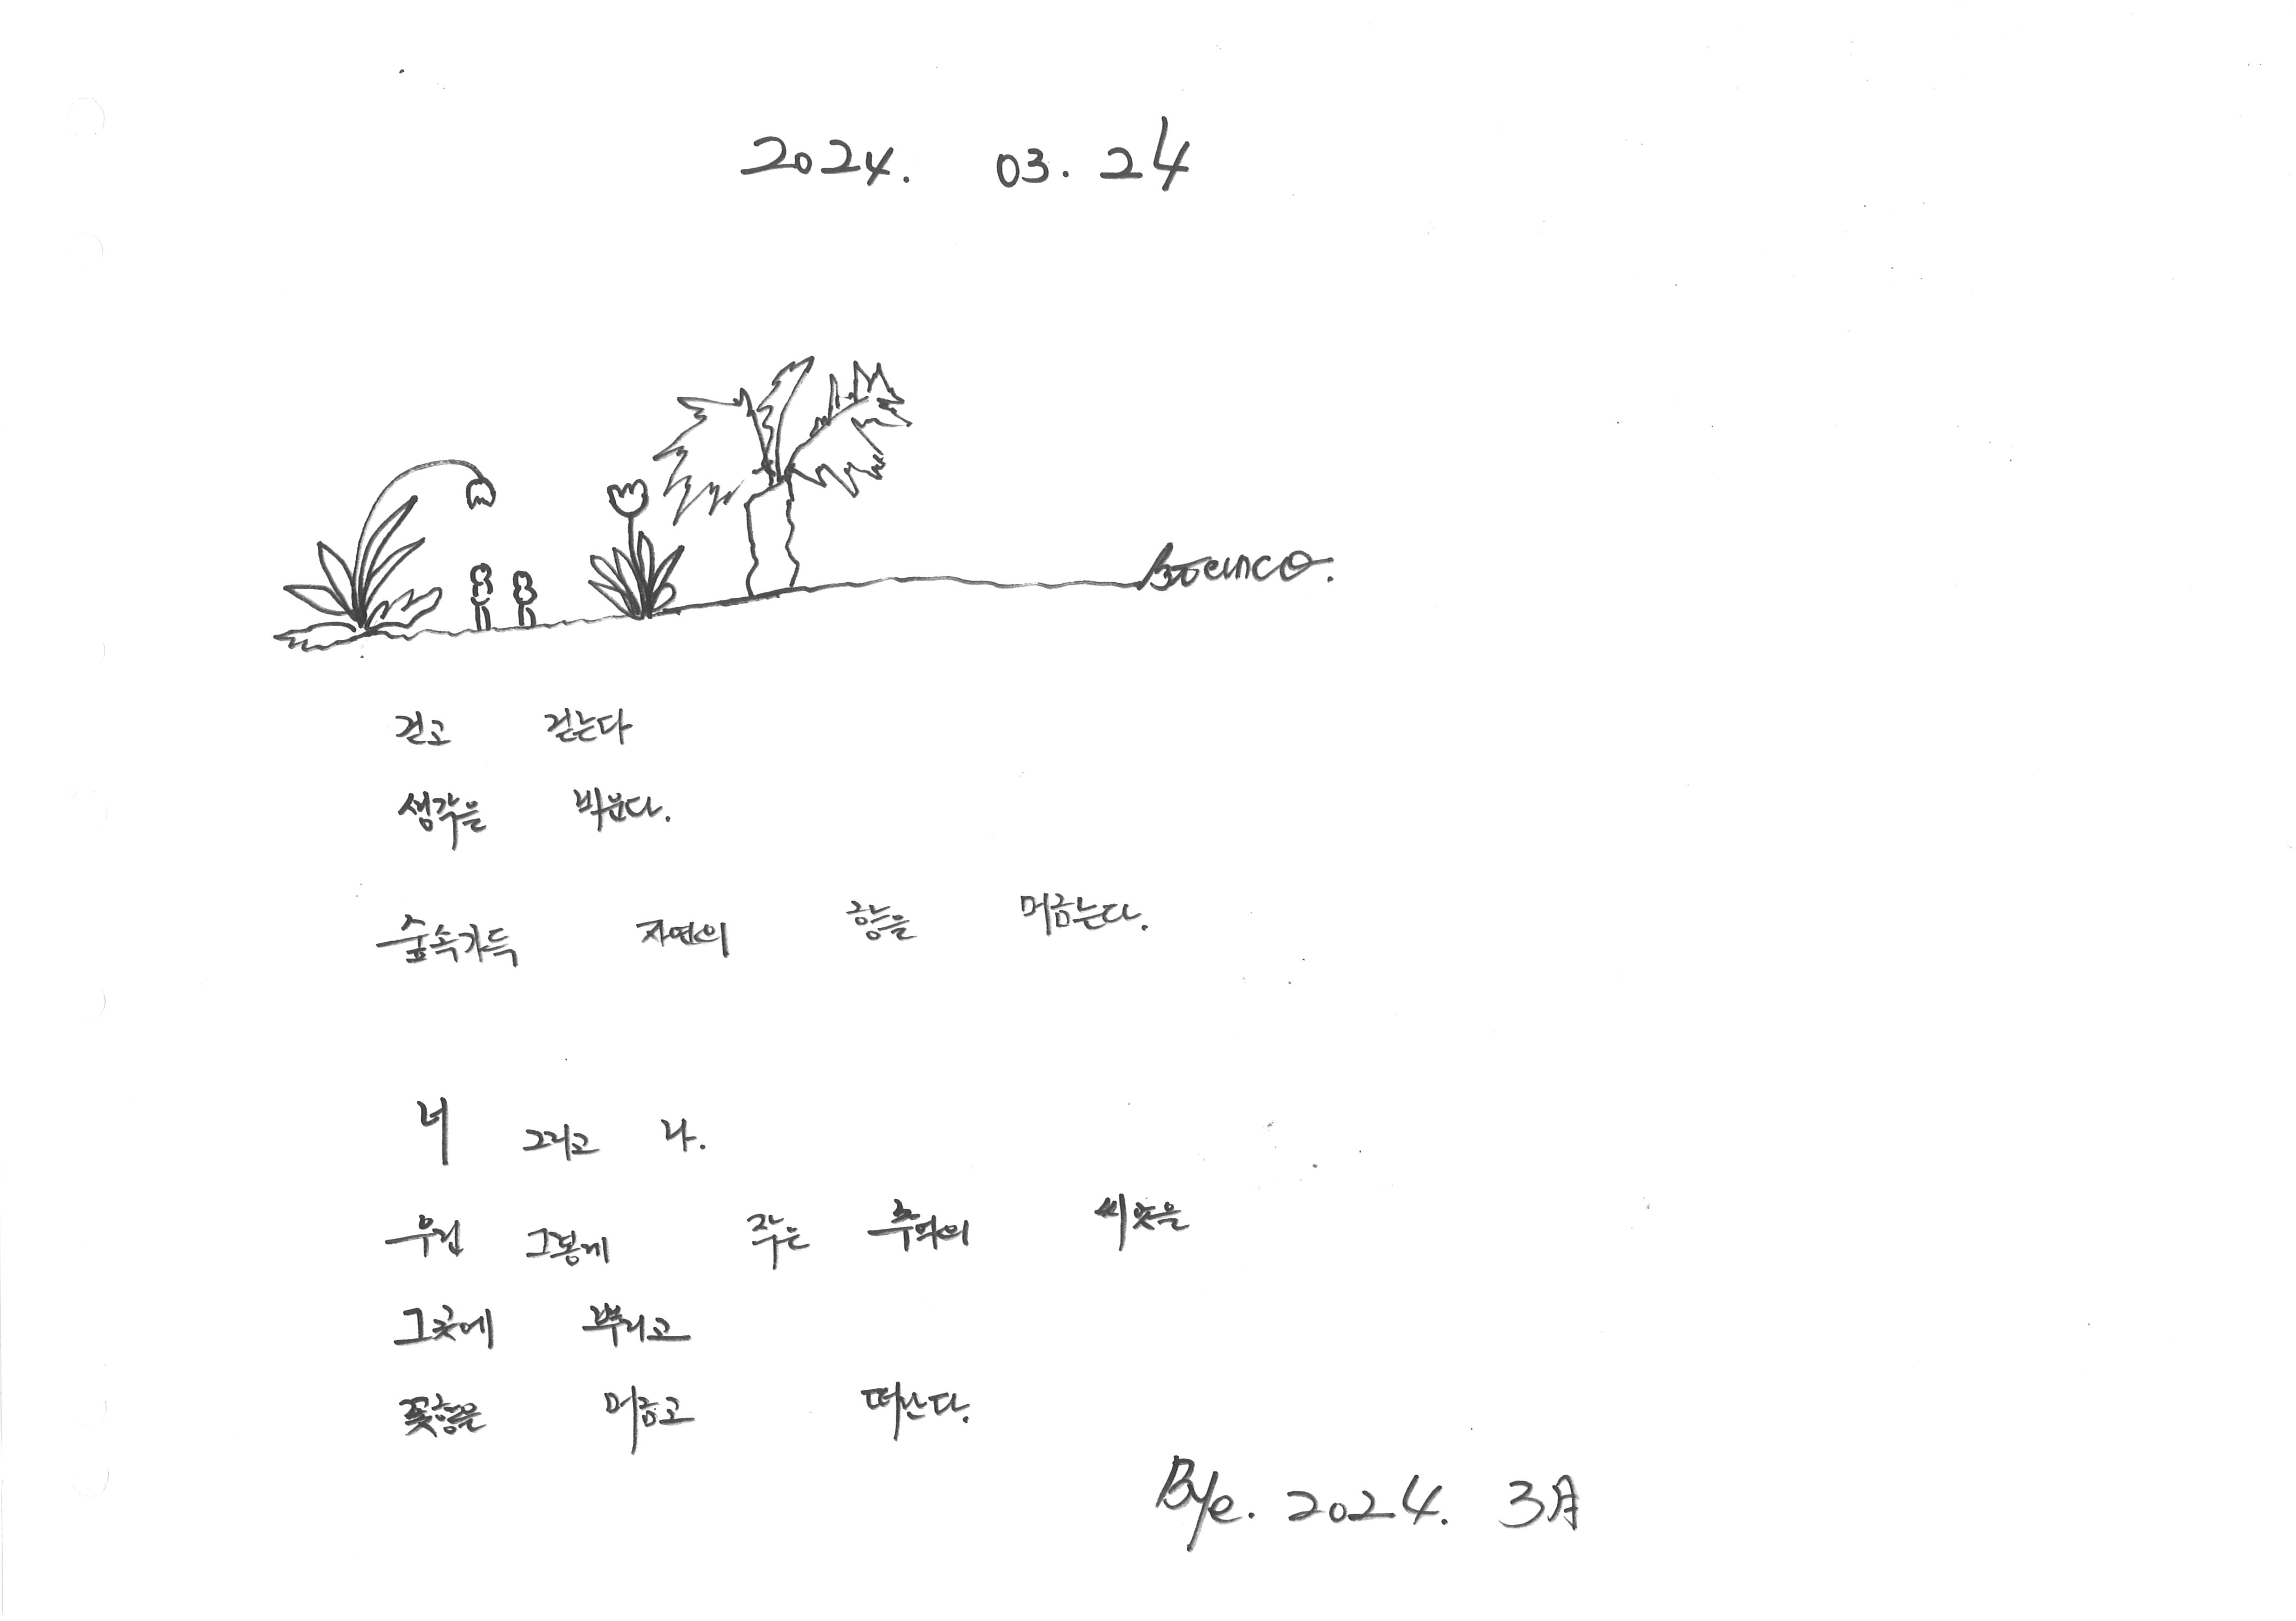 2024. 03. 24
걷고 걷는다
생각을 비운다.
숲속가득 자연의 향을 머금는다.
너 그리고 나.
우린 그렇게 작은 추억의 씨앗을
그곳에 뿌리고
꽃향을 머금고 떠난다.
Bye. 2024. 3月